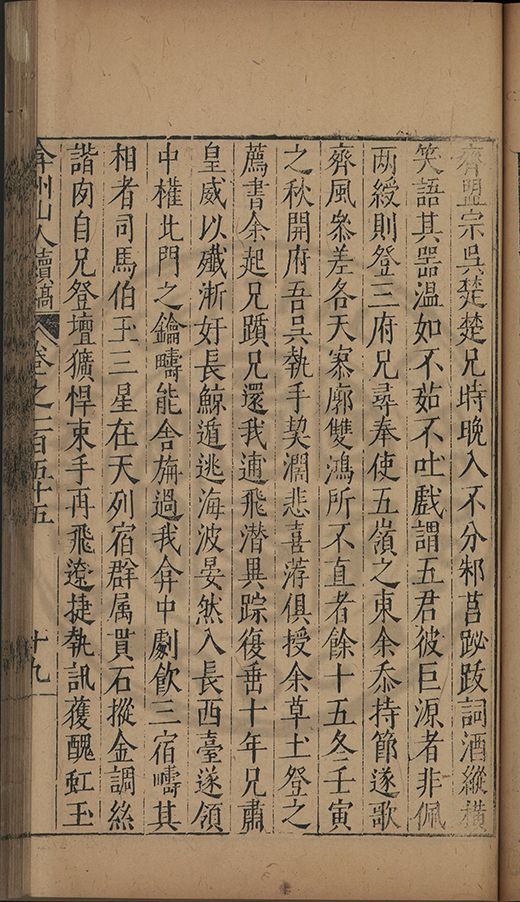 齊盟宗吳楚楚兄時晩入不分邾莒跂跋詞酒縱橫
笑語其噐温如不茹不吐戲謂五君彼巨源者非佩
两綬則登三府兄尋奉使五嶺之東余忝持節遂歌
齊風叅差各天寥廓雙鴻所不直者餘十五冬壬寅
之秋開府吾吳執手契濶悲喜洊俱授余草土登之
薦書余起兄躓兄還我逋飛潜異踪復垂十年兄肅
皇威以殲浙奸長鯨遁逃海波晏然入長西臺遂領
中權北門之鑰疇能舍旃過我弇中劇飲三宿疇其
相者司馬伯玉三星在天列宿群属貫石摐金調絲
諧肉自兄登壇獷悍束手再飛遼捷執訊獲醜虹玉
弇州山人續稿 卷之一百五十五 十九